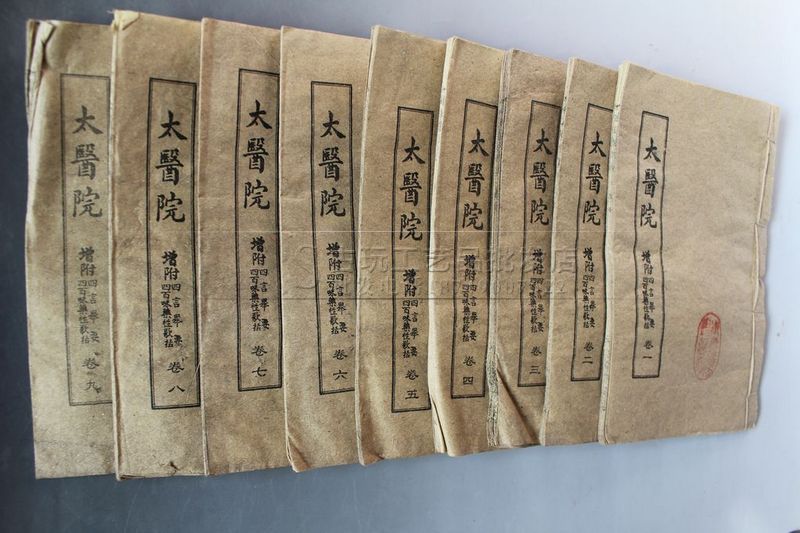 太醫院
增附四言舉要
四百味藥性歌括
卷一
太醫院
增附四言舉要
四百味藥性歌括
卷二
太醫院
增附四言舉要
四百味藥性歌括
卷三
太醫院
增附四言舉要
四百味藥性歌括
卷四
太醫院
增附四言舉要
四百味藥性歌括
卷五
太醫院
增附四言舉要
四百味藥性歌括
卷六
太醫院
增附四言舉要
四百味藥性歌括
卷七
太醫院
增附四言舉要
四百味藥性歌括
卷八
太醫院
增附四言舉要
四百味藥性歌括
卷九